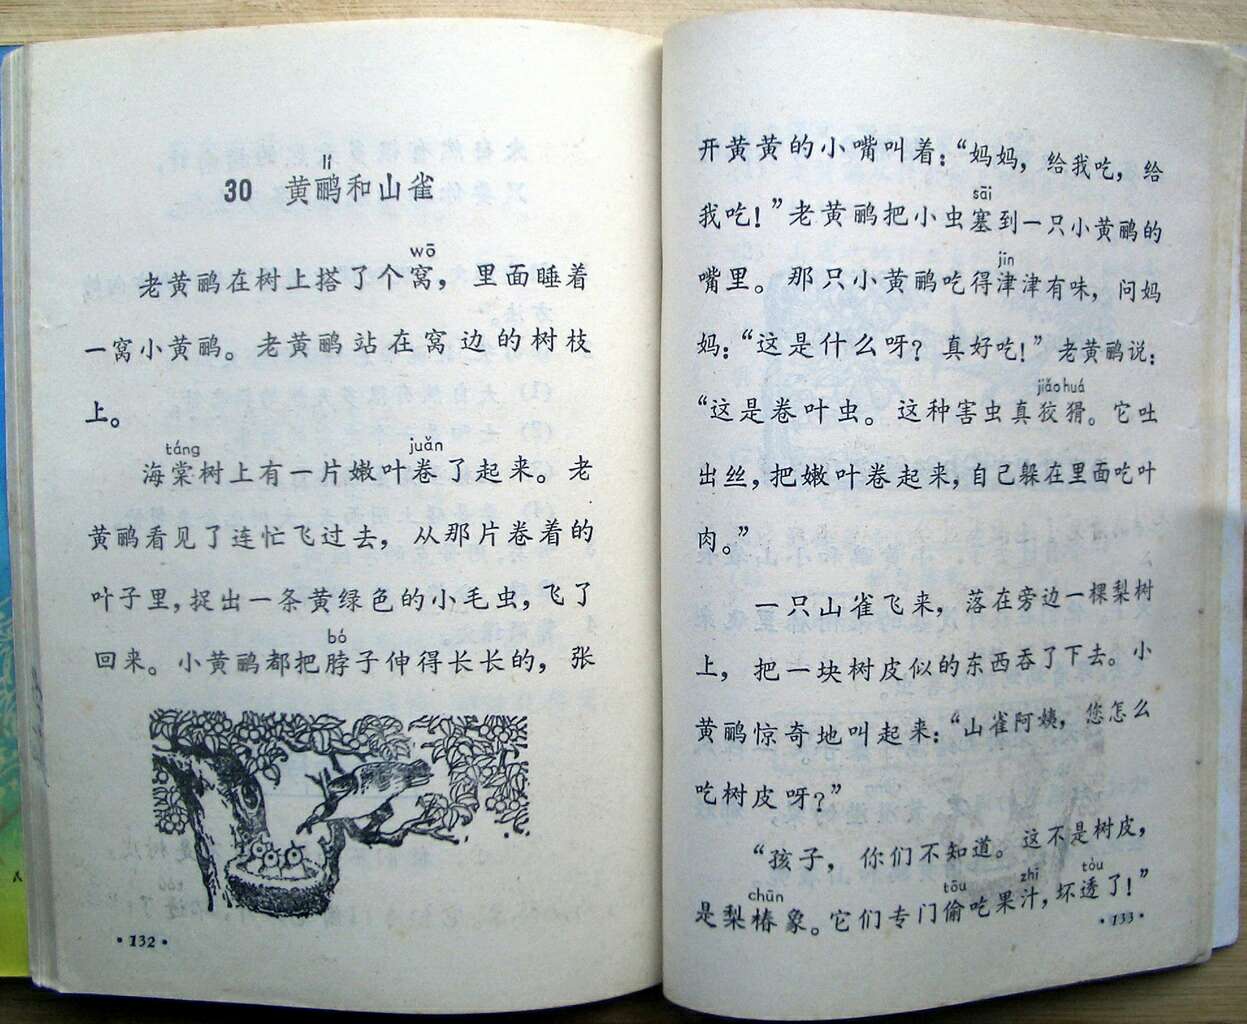 lí
30 黄鹂和山雀
wō
老黄鹂在树上搭了个窝，里面睡着
一窝小黄鹂。老黄鹂站在窝边的树枝
上。
táng juǎn
海棠树上有一片嫩叶卷了起来。老
黄鹂看见了连忙飞过去，从那片卷着的
叶子里，捉出一条黄绿色的小毛虫，飞了
bó
回来。小黄鹂都把脖子伸得长长的，张
·132·
开黄黄的小嘴叫着：“妈妈，给我吃，给
sāi
我吃！”老黄鹂把小虫塞到一只小黄鹂的
jīn
嘴里。那只小黄鹂吃得津津有味，问妈
妈：“这是什么呀？真好吃！”老黄鹂说：
jiǎo huá
“这是卷叶虫。这种害虫真狡猾。它吐
出丝，把嫩叶卷起来，自己躲在里面吃叶
肉。”
一只山雀飞来，落在旁边一棵梨树
上，把一块树皮似的东西吞了下去。小
黄鹂惊奇地叫起来：“山雀阿姨，您怎么
吃树皮呀？”
“孩子，你们不知道。这不是树皮，
chūn tōu zhī tòu
是梨椿象。它们专门偷吃果汁，坏透了！”
·133·